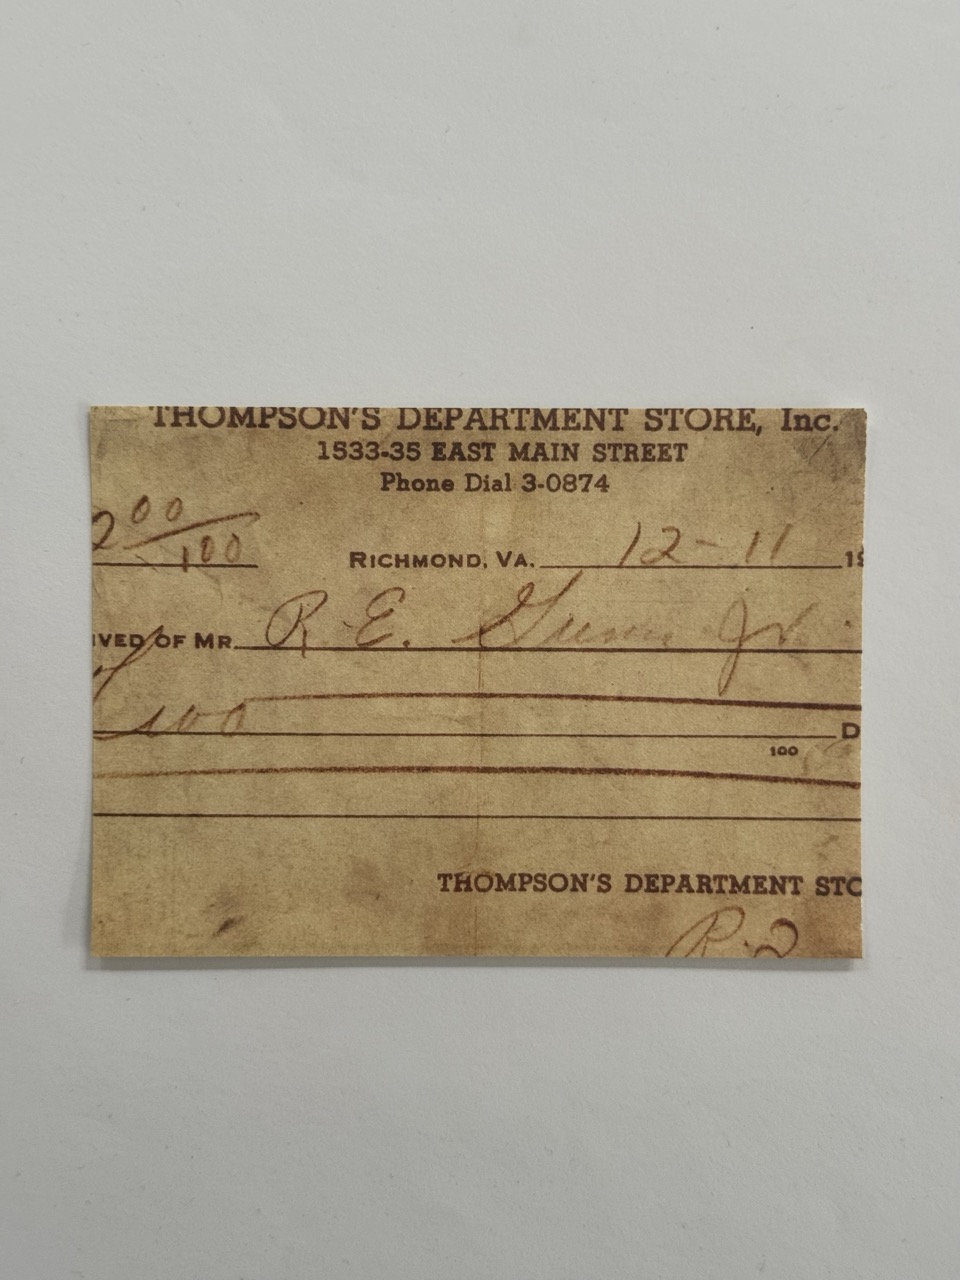 THOMPSON'S DEPARTMENT STORE, Inc.
1533-35 EAST MAIN STREET
Phone Dial 3-0874
2 00/100
RICHMOND, VA. 12-11 19
IVED OF MR. R. E. Gunn Jr.
100 D
100
THOMPSON'S DEPARTMENT STO
R.